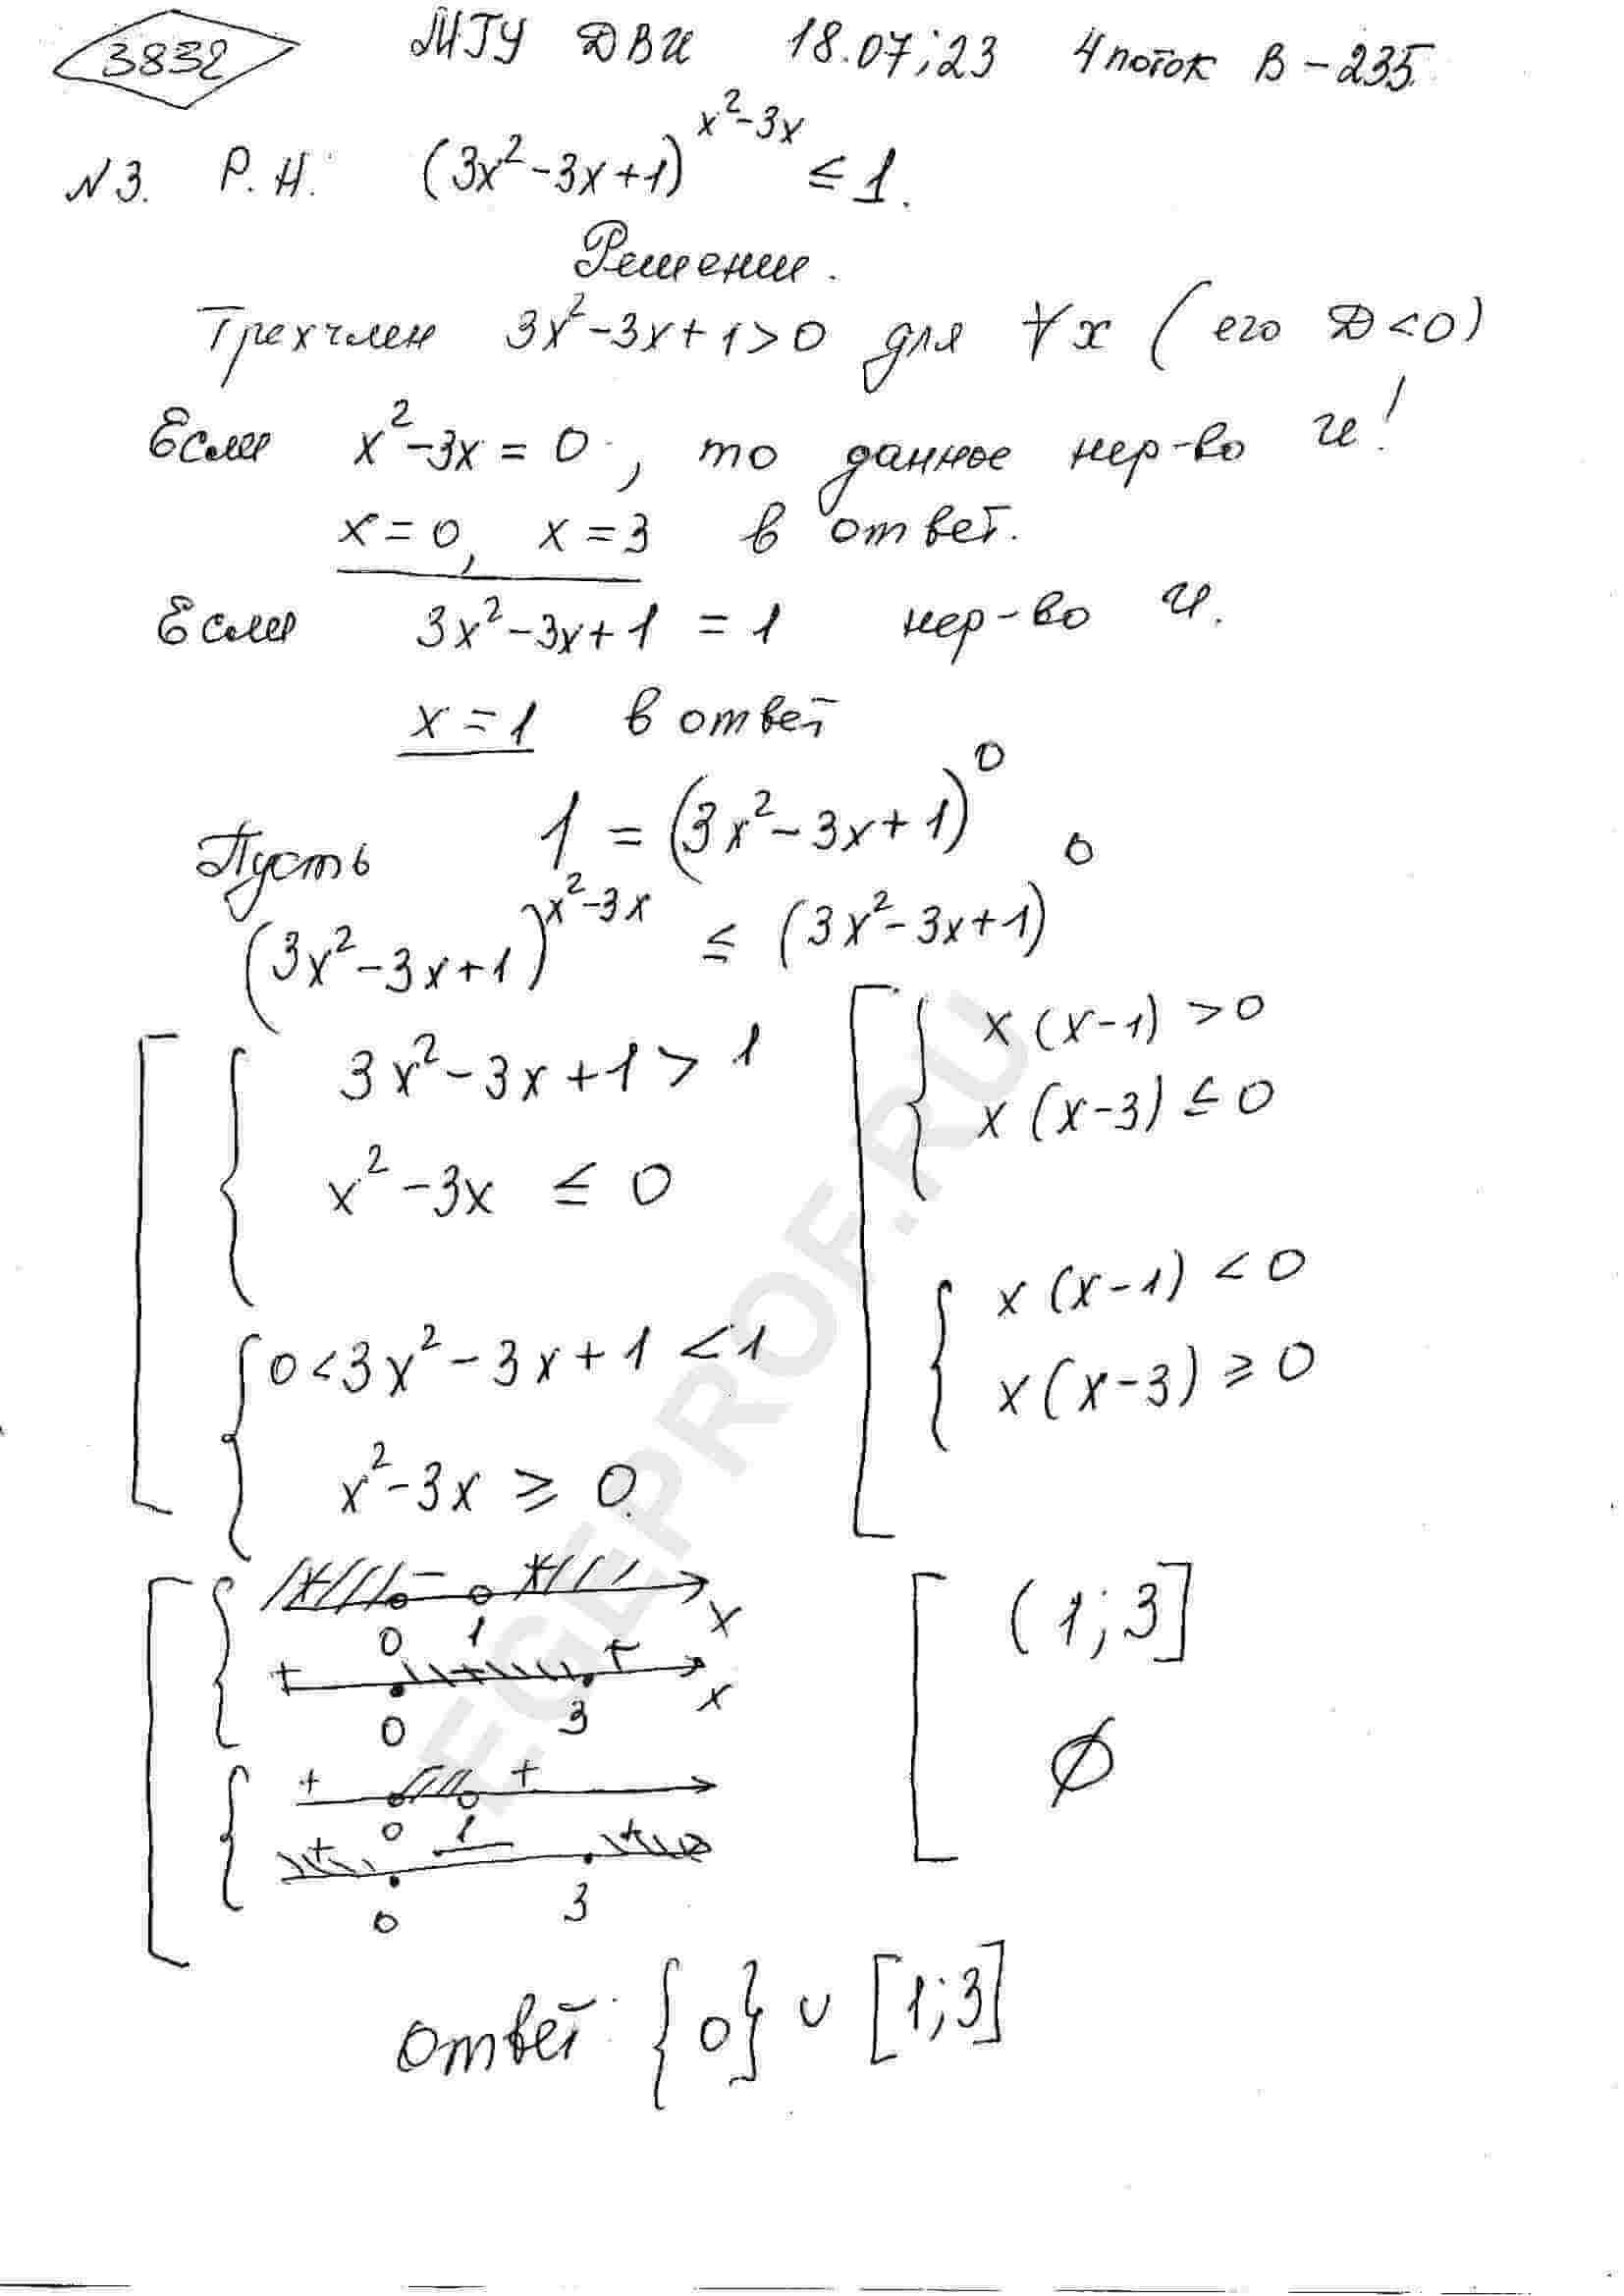 3832 МГУ ДВИ 18.07;23 4 поток В-235
№3. Р.Н: (3x²-3x+1)^(x²-3x) ≤ 1.
Решение.
Трехчлен 3x²-3x+1>0 для ∀x (его D<0)
Если x²-3x=0, то данное нер-во И!
x=0, x=3 в ответ.
Если 3x²-3x+1=1 нер-во И.
x=1 в ответ
Пусть 1=(3x²-3x+1)⁰
(3x²-3x+1)^(x²-3x) ≤ (3x²-3x+1)⁰
3x²-3x+1>1
x²-3x ≤ 0
0<3x²-3x+1<1
x²-3x ≥ 0
x(x-1)>0
x(x-3)≤0
x(x-1)<0
x(x-3)≥0
+ - +
0 1 x
+ - +
0 3 x
+ +
0 1
+ - +
0 3
(1;3]
∅
Ответ: {0} ∪ [1;3]
EGEPROF.RU